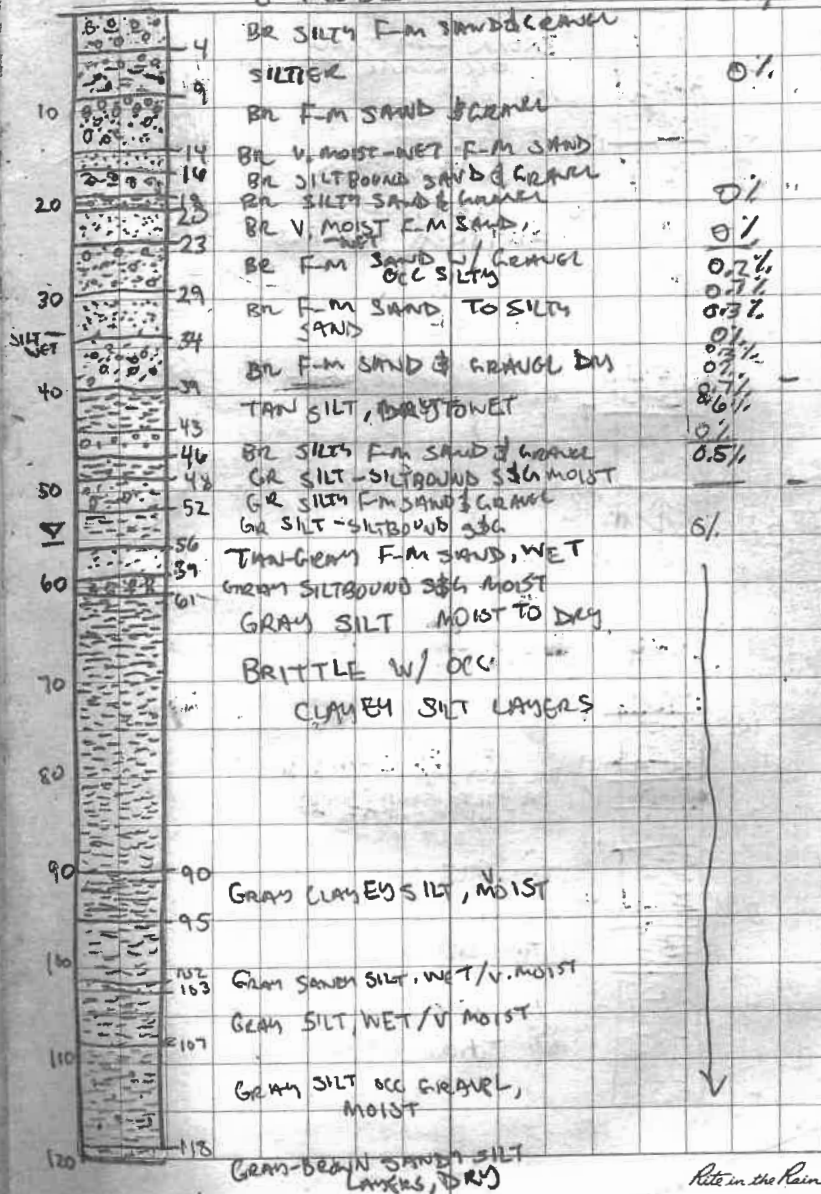 BR SILTY F-M SAND & GRAVEL
4
SILTIER 0%
9
10 BR F-M SAND & GRAVEL
14 BR V. MOIST-WET F-M SAND
16 BR SILTBOUND SAND & GRAVEL
18 BR SILTY SAND & GRAVEL 0%
20
BR V. MOIST F-M SAND, 0%
WET
23
BR F-M SAND W/ GRAVEL 0.2%
OCC SILTY
29
30 BR F-M SAND TO SILTY 0.3%
SAND
SILT 34 0%
WET
BR F-M SAND & GRAVEL DRY 0%
39
40
TAN SILT, TO WET
43 0%
46 BR SILTY F-M SAND & GRAVEL 0.5%
48 GR SILT-SILTBOUND S&G MOIST
50 GR SILTY F-M SAND & GRAVEL
52 GR SILT-SILTBOUND S&G
56 TAN-GRAY F-M SAND, WET
59
60 GRAY SILTBOUND S&G MOIST
61 GRAY SILT MOIST TO DRY
BRITTLE W/ OCC
70
CLAYEY SILT LAYERS
80
90 90
GRAY CLAYEY SILT, MOIST
95
100
102 GRAY SANDY SILT, WET/V. MOIST
103
GRAY SILT, WET/V MOIST
107
110
GRAY SILT OCC GRAVEL,
MOIST
118
120
GRAY-BROWN SANDY SILT
LAYERS, DRY
Rite in the Rain